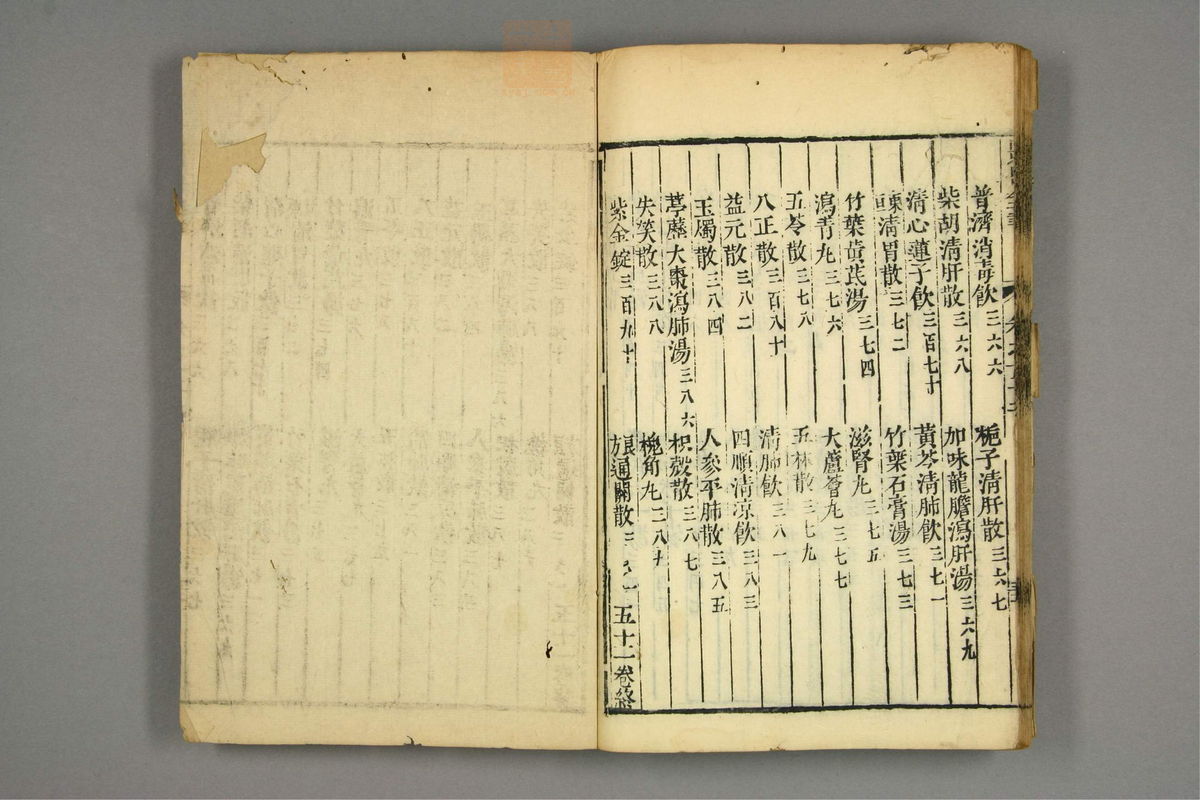 普濟消毒飲三六六　梔子清肝散三六七
柴胡清肝散三六八　加味龍膽瀉肝湯三六九
清心蓮子飲三百七十　黃芩清肺飲三七一
清胃散三七二　竹葉石膏湯三七三
竹葉黃芪湯三七四　滋腎丸三七五
瀉青丸三七六　大蘆薈丸三七七
五苓散三七八　五淋散三七九
八正散三百八十　清肺飲三八一
益元散三八二　四順清凉飲三八三
玉燭散三八四　人參平肺散三八五
葶藶大棗瀉肺湯三八六　枳殼散三八七
失笑散三八八　槐角丸三八
紫金錠三百九十　通關散三　一　五十二卷終